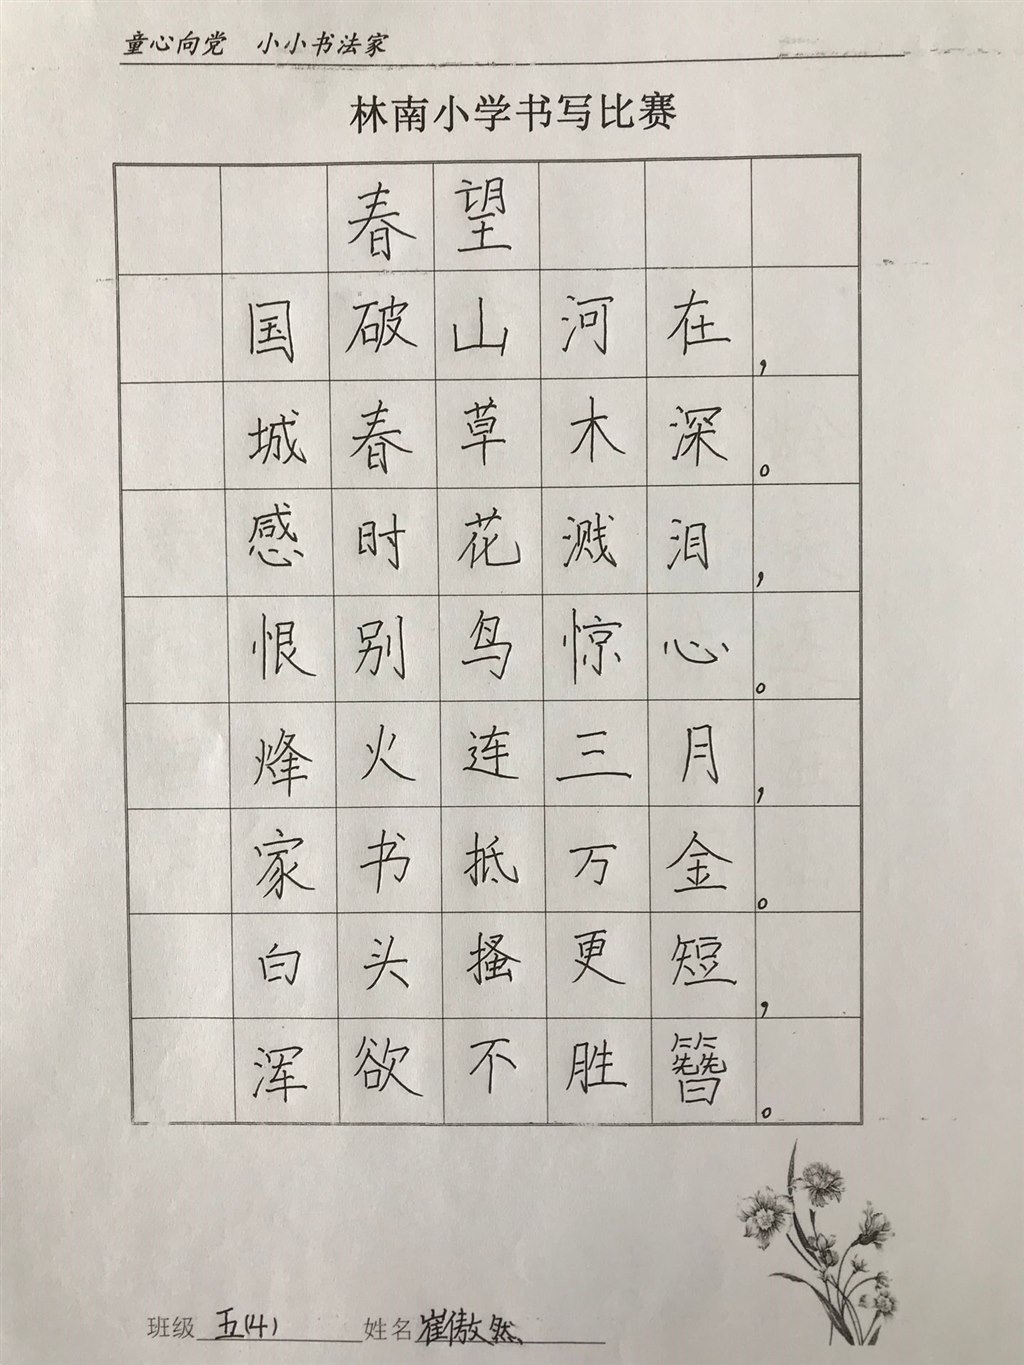 童心向党 小小书法家
林南小学书写比赛
春望
国破山河在，
城春草木深。
感时花溅泪，
恨别鸟惊心。
烽火连三月，
家书抵万金。
白头搔更短，
浑欲不胜簪。
班级 五(4) 姓名 崔傲然